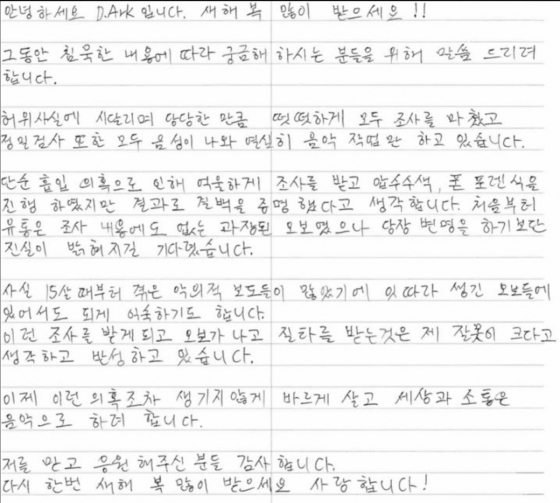 안녕하세요 D.Ark 입니다. 새해 복 많이 받으세요 !!
그동안 침묵한 내용에 따라 궁금해 하시는 분들을 위해 말씀 드리려
합니다.
허위사실에 시달리며 당당한 만큼 떳떳하게 모두 조사를 마쳤고
정밀검사 또한 모두 음성이 나와 열심히 음악 작업만 하고 있습니다.
단순 흡입 의혹으로 인해 억울하게 조사를 받고 압수수색, 폰 포렌식을
진행 하였지만 결과로 결백을 증명 했다고 생각합니다. 처음부터
유통은 조사 내용에도 없는 과장된 오보였으나 당장 변명을 하기보단
진실이 밝혀지길 기다렸습니다.
사실 15살 때부터 겪은 악의적 보도들이 많았기에 잇따라 생긴 오보들에
있어서도 되게 익숙하기도 합니다.
이런 조사를 받게 되고 오보가 나고 질타를 받는것은 제 잘못이 크다고
생각하고 반성하고 있습니다.
이제 이런 의혹조차 생기지않게 바르게 살고 세상과 소통은
음악으로 하려 합니다.
저를 믿고 응원 해주신 분들 감사합니다.
다시 한번 새해 복 많이 받으세요 사랑합니다!